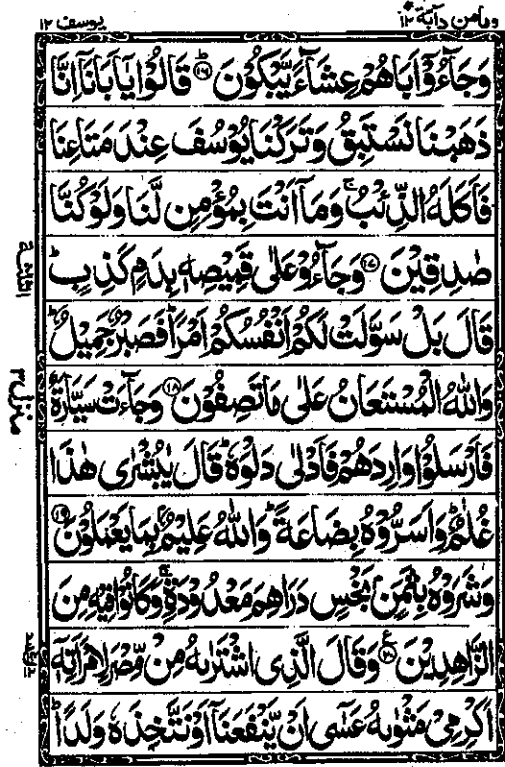 ومامن دآبة ١٢ يوسف ١٢
وَجَآءُوْٓ اَبَاهُمْ عِشَآءً يَّبْكُوْنَ ۝١٦ؕ قَالُوْا يَاۤاَبَانَاۤ اِنَّا
ذَهَبْنَا نَسْتَبِقُ وَتَرَكْنَا يُوْسُفَ عِنْدَ مَتَاعِنَا
فَاَكَلَهُ الذِّئْبُ ۚ وَمَآ اَنْتَ بِمُؤْمِنٍ لَّنَا وَلَوْ كُنَّا
صٰدِقِيْنَ ۝١٧ وَجَآءُوْ عَلٰى قَمِيْصِهٖ بِدَمٍ كَذِبٍ ؕ
قَالَ بَلْ سَوَّلَتْ لَكُمْ اَنْفُسُكُمْ اَمْرًا ؕ فَصَبْرٌ جَمِيْلٌ ؕ
وَاللّٰهُ الْمُسْتَعَانُ عَلٰى مَا تَصِفُوْنَ ۝١٨ وَجَآءَتْ سَيَّارَةٌ
فَاَرْسَلُوْا وَارِدَهُمْ فَاَدْلٰى دَلْوَهٗ ؕ قَالَ يٰبُشْرٰى هٰذَا
غُلٰمٌ ؕ وَاَسَرُّوْهُ بِضَاعَةً ؕ وَاللّٰهُ عَلِيْمٌۢ بِمَا يَعْمَلُوْنَ ۝١٩
وَشَرَوْهُ بِثَمَنٍۢ بَخْسٍ دَرَاهِمَ مَعْدُوْدَةٍ ۚ وَكَانُوْا فِيْهِ مِنَ
الزَّاهِدِيْنَ ۝٢٠ وَقَالَ الَّذِى اشْتَرٰىهُ مِنْ مِّصْرَ لِامْرَاَتِهٖٓ
اَكْرِمِىْ مَثْوٰىهُ عَسٰٓى اَنْ يَّنْفَعَنَاۤ اَوْ نَتَّخِذَهٗ وَلَدًا ؕ
منزل ٣